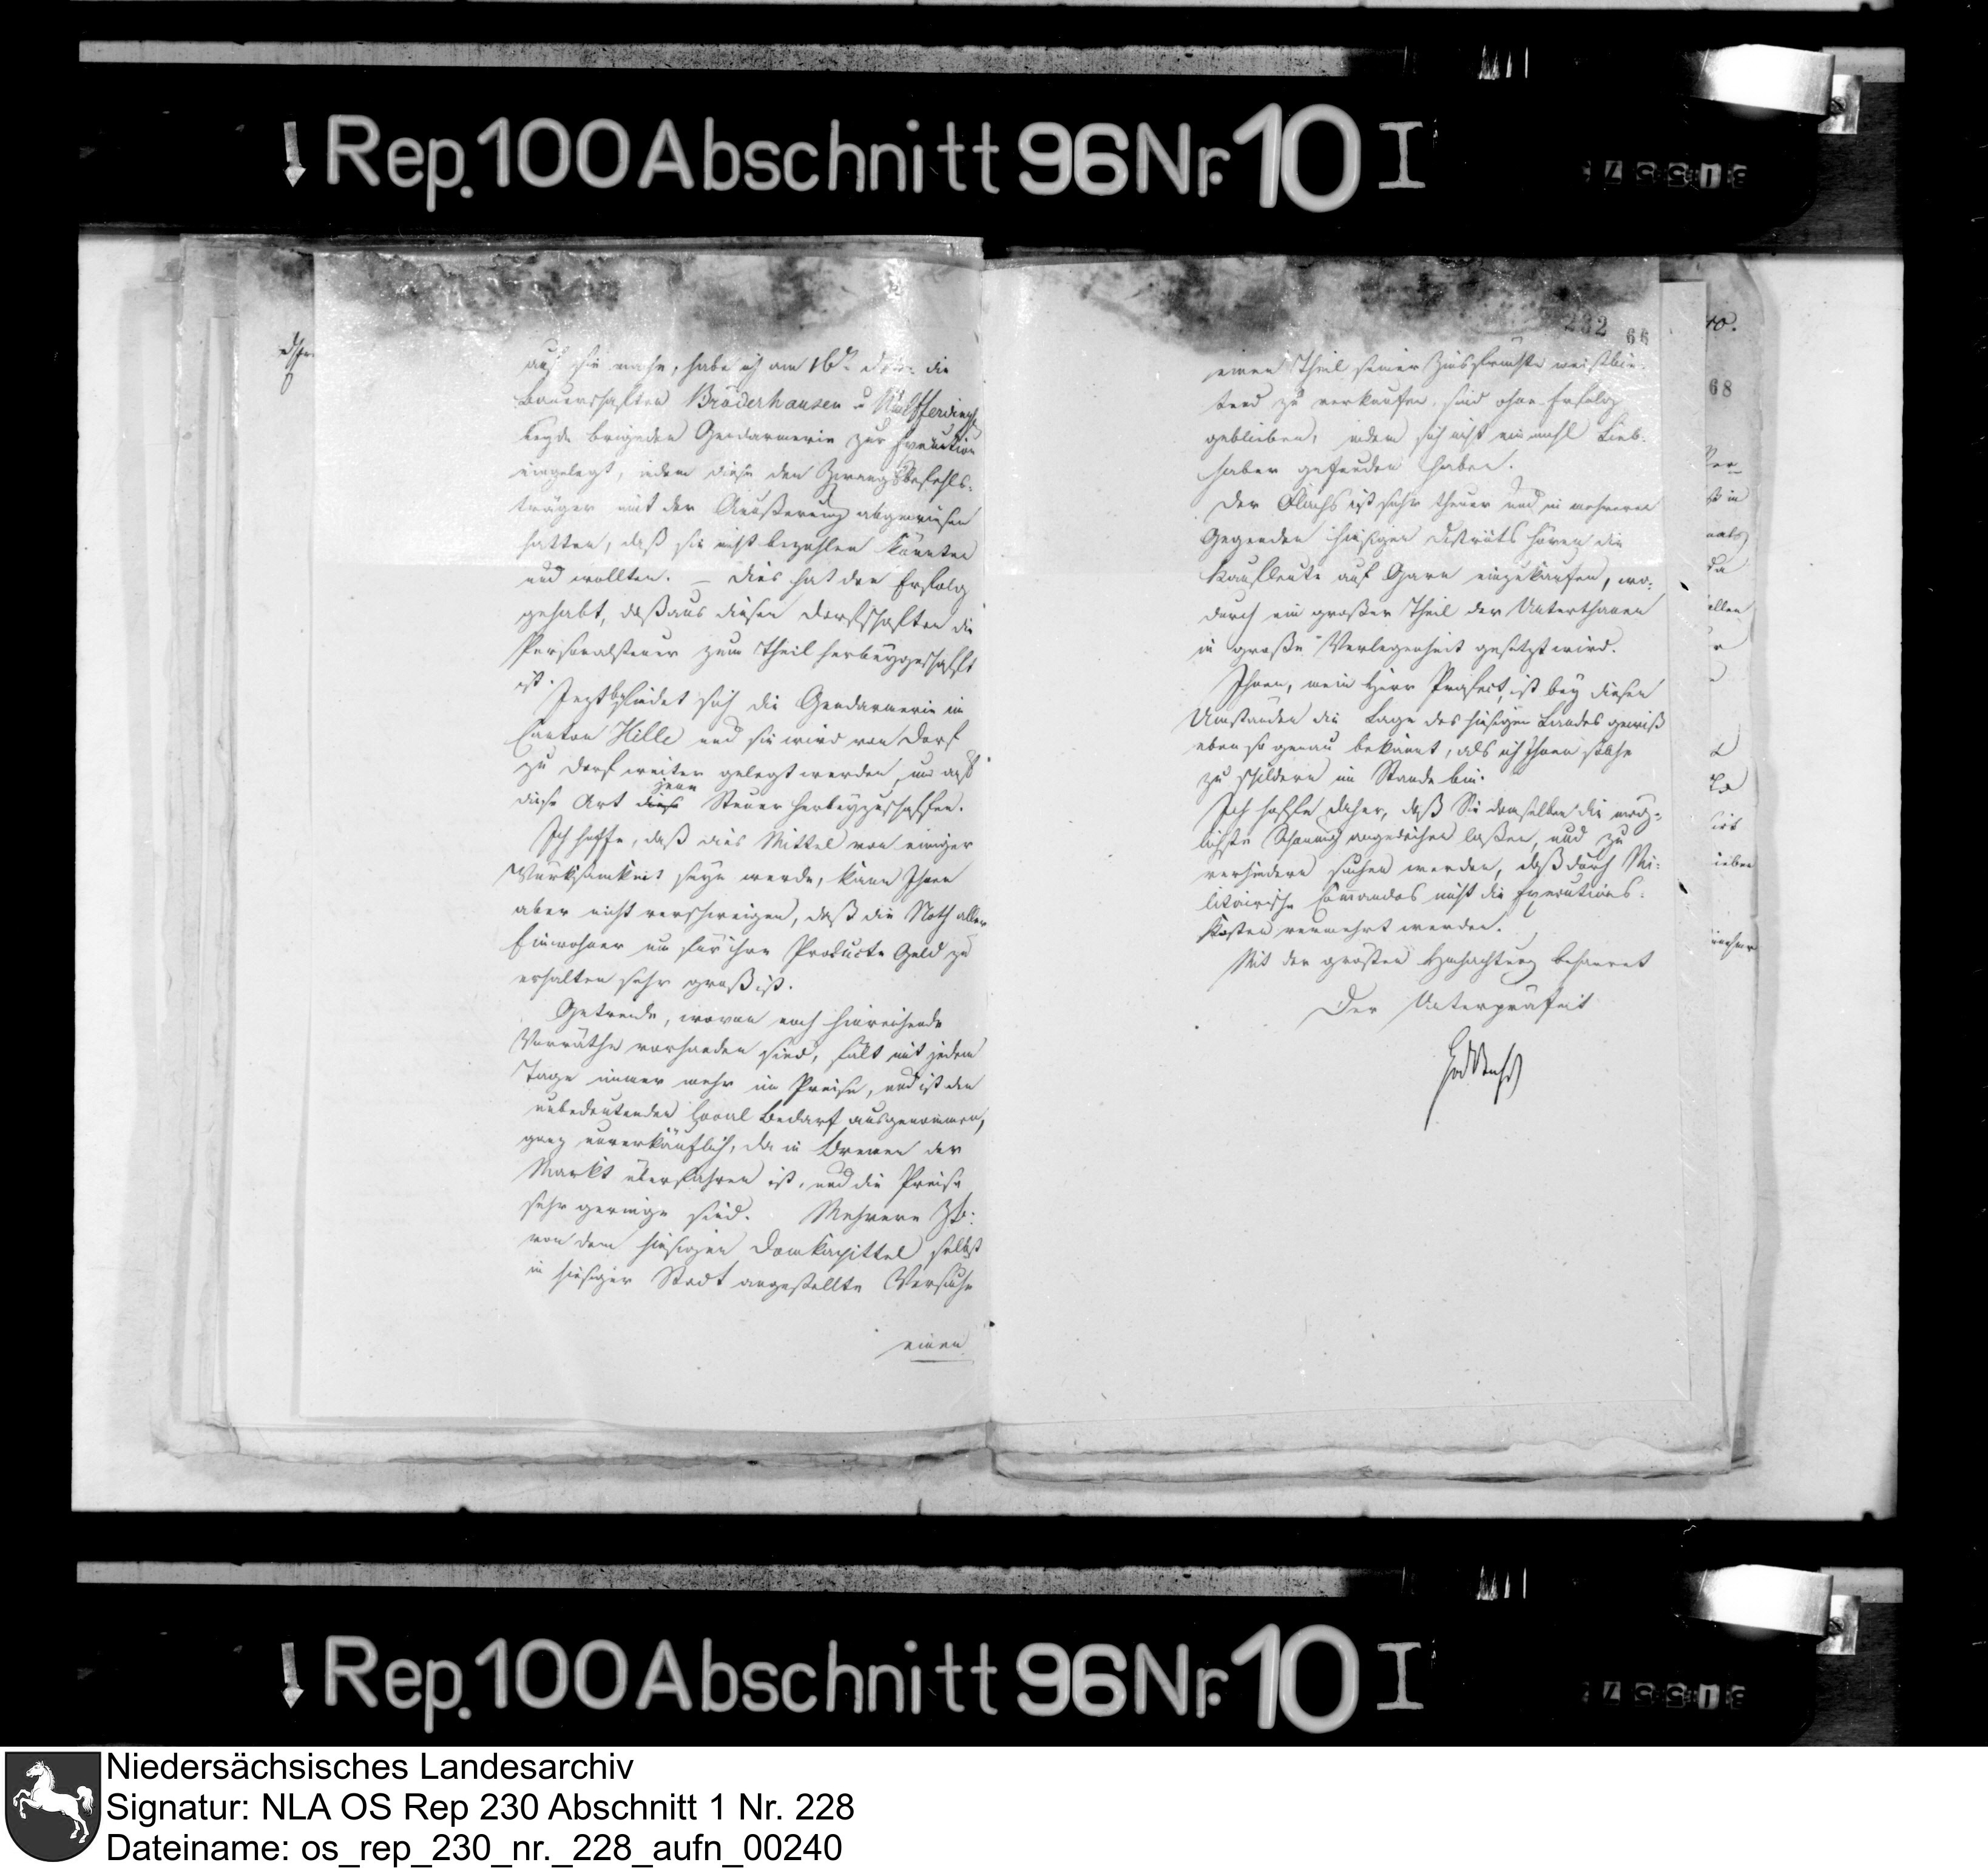 Rep. 100 Abschnitt 96 Nr. 10 I
auf sie mache, habe ich am 16ten die
Bauerschaften Bröderhausen u
beyde Brigaden Gendarmerie zur Execution
eingelegt, indem diese den Zwangsbefehls-
träger mit der Äusserung abgewiesen
hatten, daß sie nicht bezahlen könnten
und wollten. – Dies hat den Erfolg
gehabt, daß aus diesen Dorfschaften die
Personalsteuer zum Theil herbeygeschafft
ist.
Jezt befindet sich die Gendarmerie im
Canton Hille und sie wird von Dorf
zu Dorf weiter gelegt werden, um auf
diese Art jene Steuer herbeyzuschaffen.
Ich hoffe, daß dies Mittel von einiger
Würksamkeit seyn werde, kann Ihnen
aber nicht verschweigen, daß die Noth aller
Einwohner um für ihre Producte Geld zu
erhalten sehr groß ist.
Getreide, wovon noch hinreichende
Vorräthe vorhanden sind, fält mit jedem
Tage immer mehr im Preise, und ist den
unbedeutenden Local Bedarf ausgenommen,
ganz unverkäuflich, da in Bremen der
Markt überfahren ist, und die Preise
sehr geringe sind. Mehrere
von dem hiesigen Domkapittel selbst
in hiesiger Stadt angestellte Versuche
einen
232 66
einen Theil seiner Zinsfrüchte meistbie-
tend zu verkaufen, sind ohne Erfolg
geblieben, indem sich nicht einmahl Lieb-
haber gefunden haben.
Der Flachs ist sehr theuer und in mehreren
Gegenden hiesigen Districts hören die
Kaufleute auf Garn einzukaufen, wo-
durch ein großer Theil der Unterthanen
in große Verlegenheit gesetzt wird.
Ihnen, mein Herr Präfect, ist bey diesen
Umständen die Lage des hiesigen Landes gewiß
eben so genau bekannt, als ich Ihnen solche
zu schildern im Stande bin.
Ich hoffe daher, daß Sie demselben die mög-
lichste Schonung angedeihen laßen, und zu
verhindern suchen werden, daß durch Mi-
litairische Commandos nicht die Executions-
Kosten vermehrt werden.
Mit der grösten Hochachtung beharret
Der Unterpräfect
68
Rep. 100 Abschnitt 96 Nr. 10 I
Niedersächsisches Landesarchiv
Signatur: NLA OS Rep 230 Abschnitt 1 Nr. 228
Dateiname: os_rep_230_nr._228_aufn_00240